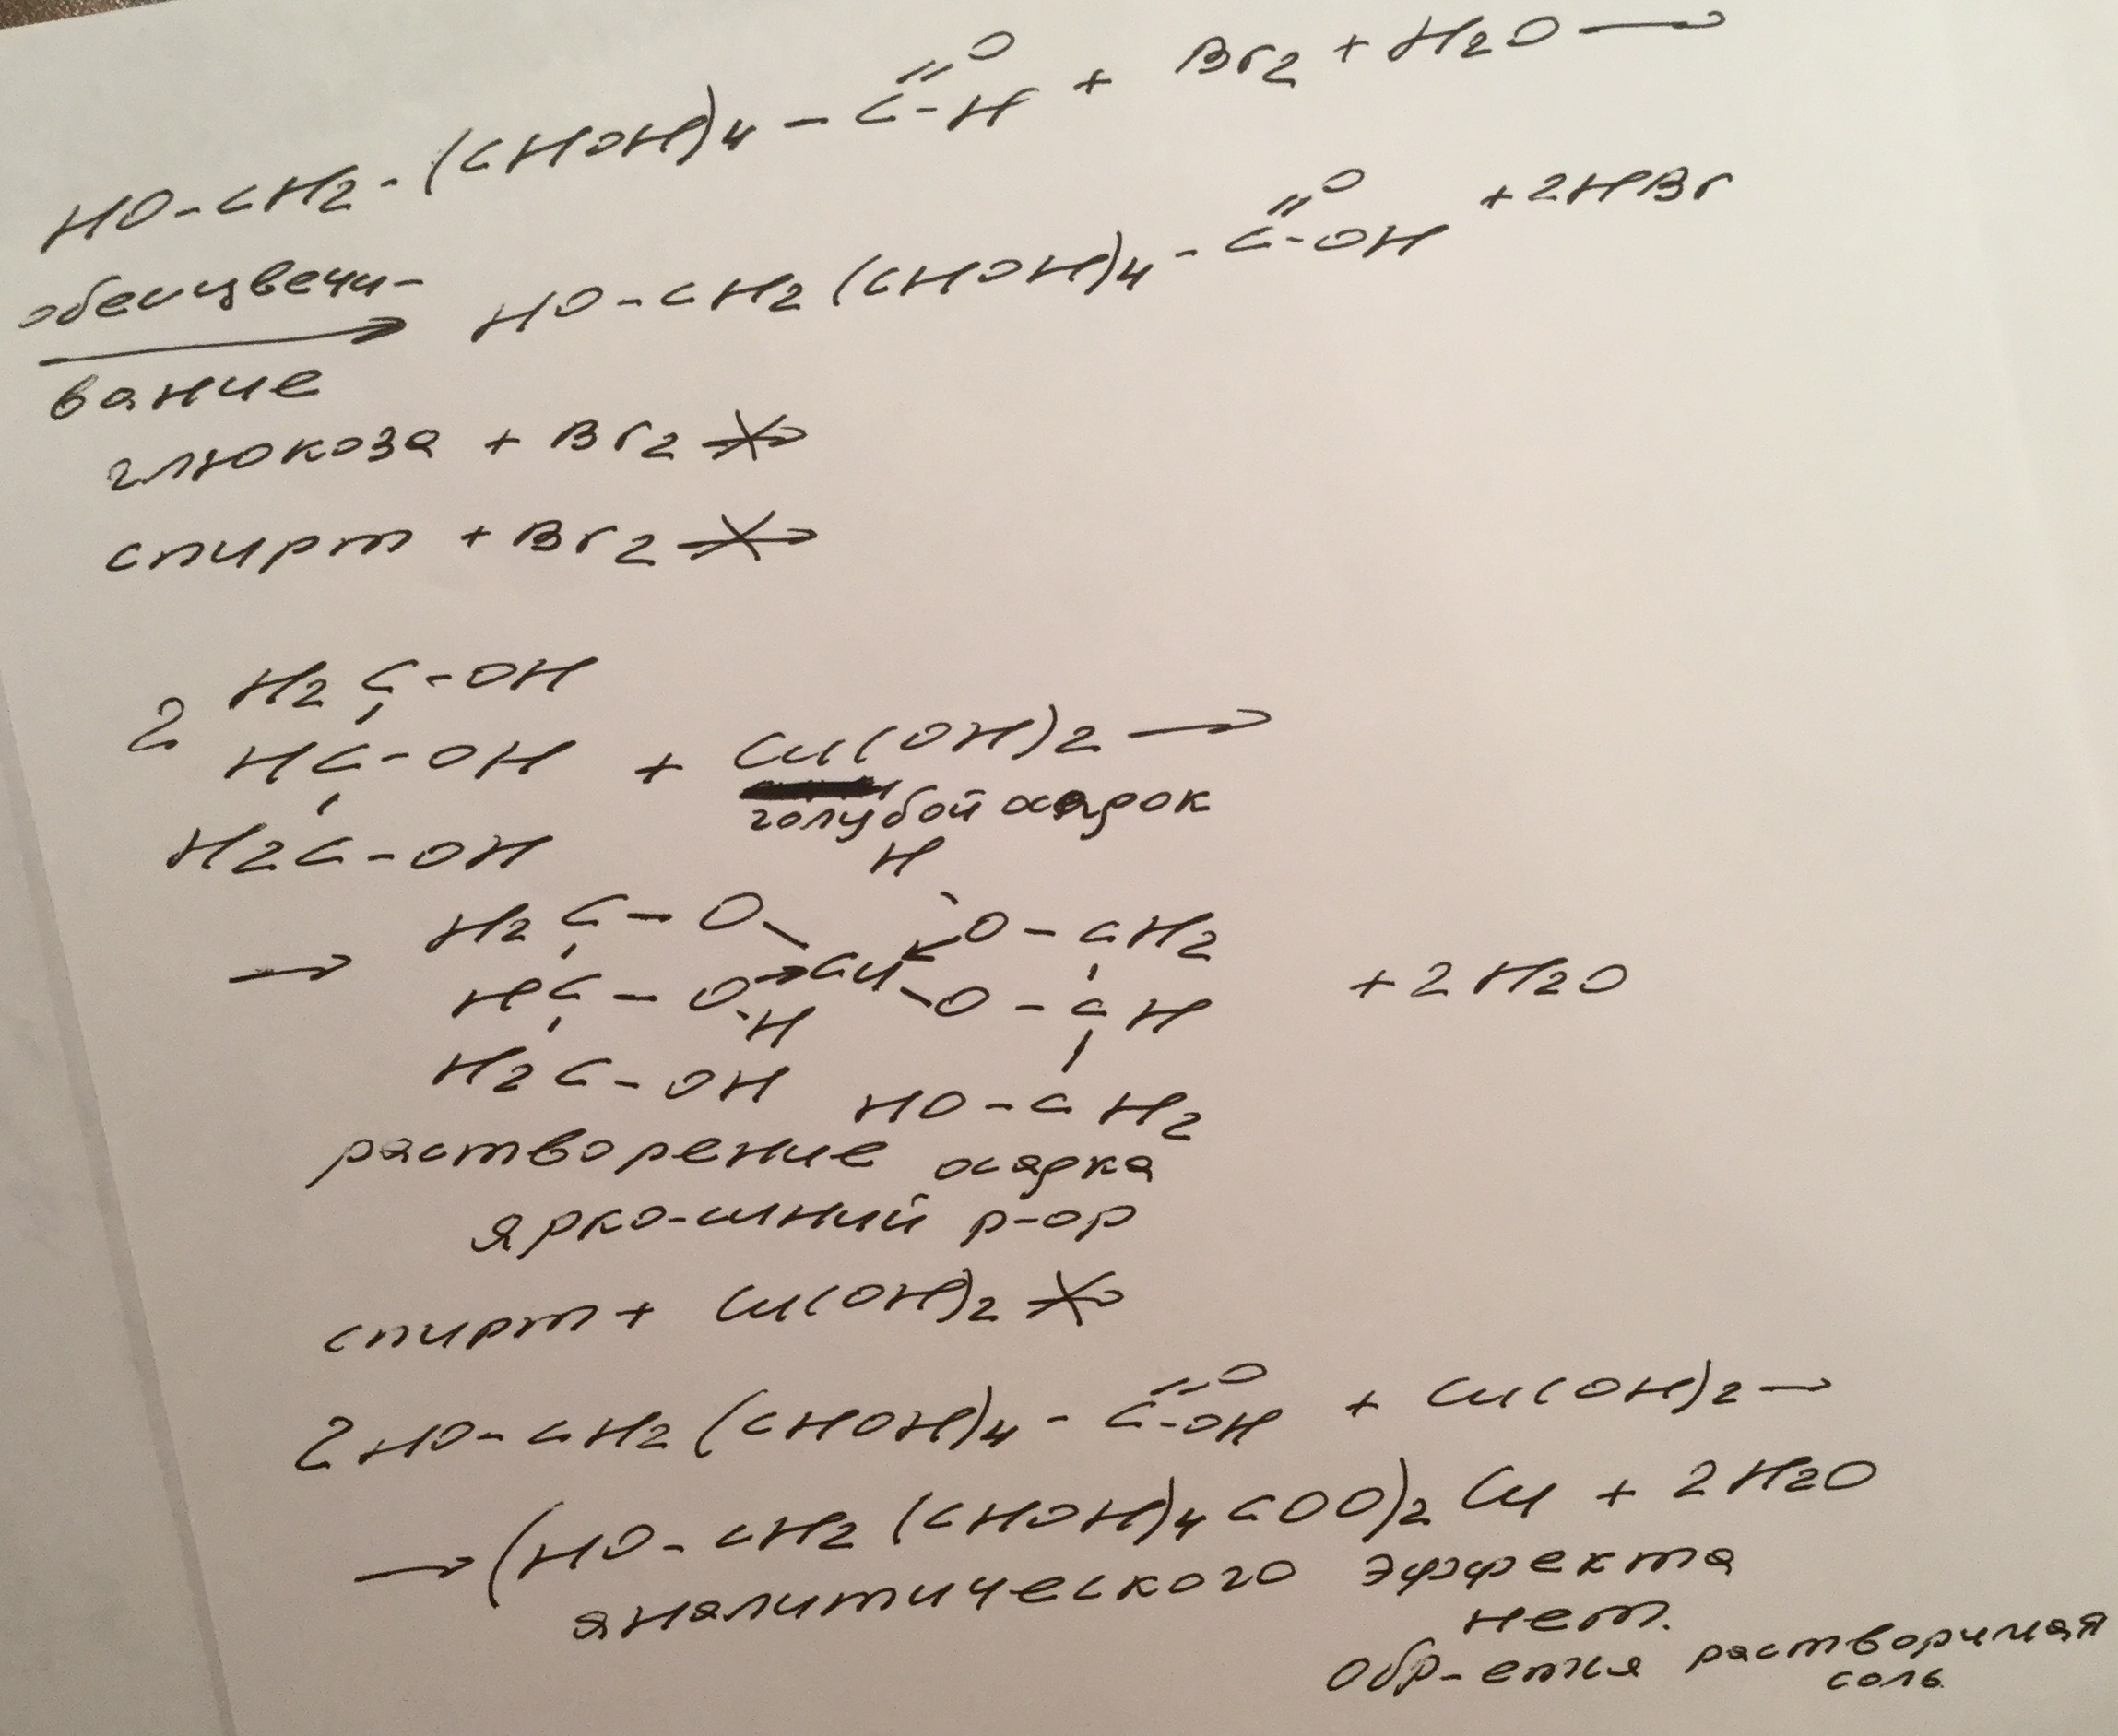 HO-CH2-(CHOH)4-C=O-H + Br2 + H2O →
обесцвечи-
→ HO-CH2(CHOH)4-C=O-OH + 2HBr
вание
глюкоза + Br2 ↛
спирт + Br2 ↛
2 H2C-OH
HC-OH + Cu(OH)2 →
голубой осадок
H2C-OH
H
→ H2C-O Cu O-CH2
HC-O-H → Cu-O-CH + 2H2O
H2C-OH HO-CH2
растворение осадка
ярко-синий р-ор
спирт + Cu(OH)2 ↛
2HO-CH2(CHOH)4-C=O-OH + Cu(OH)2 →
→ (HO-CH2(CHOH)4COO)2Cu + 2H2O
аналитического эффекта
нет.
Обр-ется растворимая
соль.